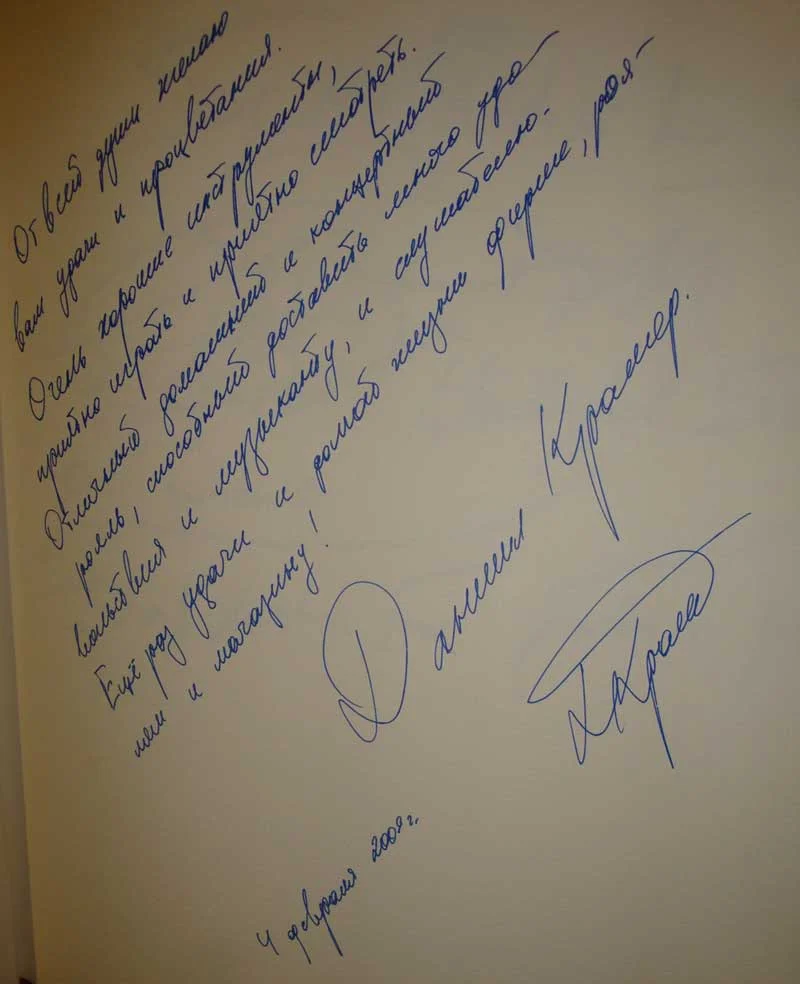 От всей души желаю
вам удачи и процветания.
Очень хорошие инструменты,
приятно играть и приятно смотреть.
Отличный домашний и концертный
рояль, способный доставить много удо-
вольствия и музыканту, и слушателю.
Ещё раз удачи и долгой жизни фирме, роя-
лям и магазину!
Даниил Крамер.
ДКрамер
4 февраля 2009 г.